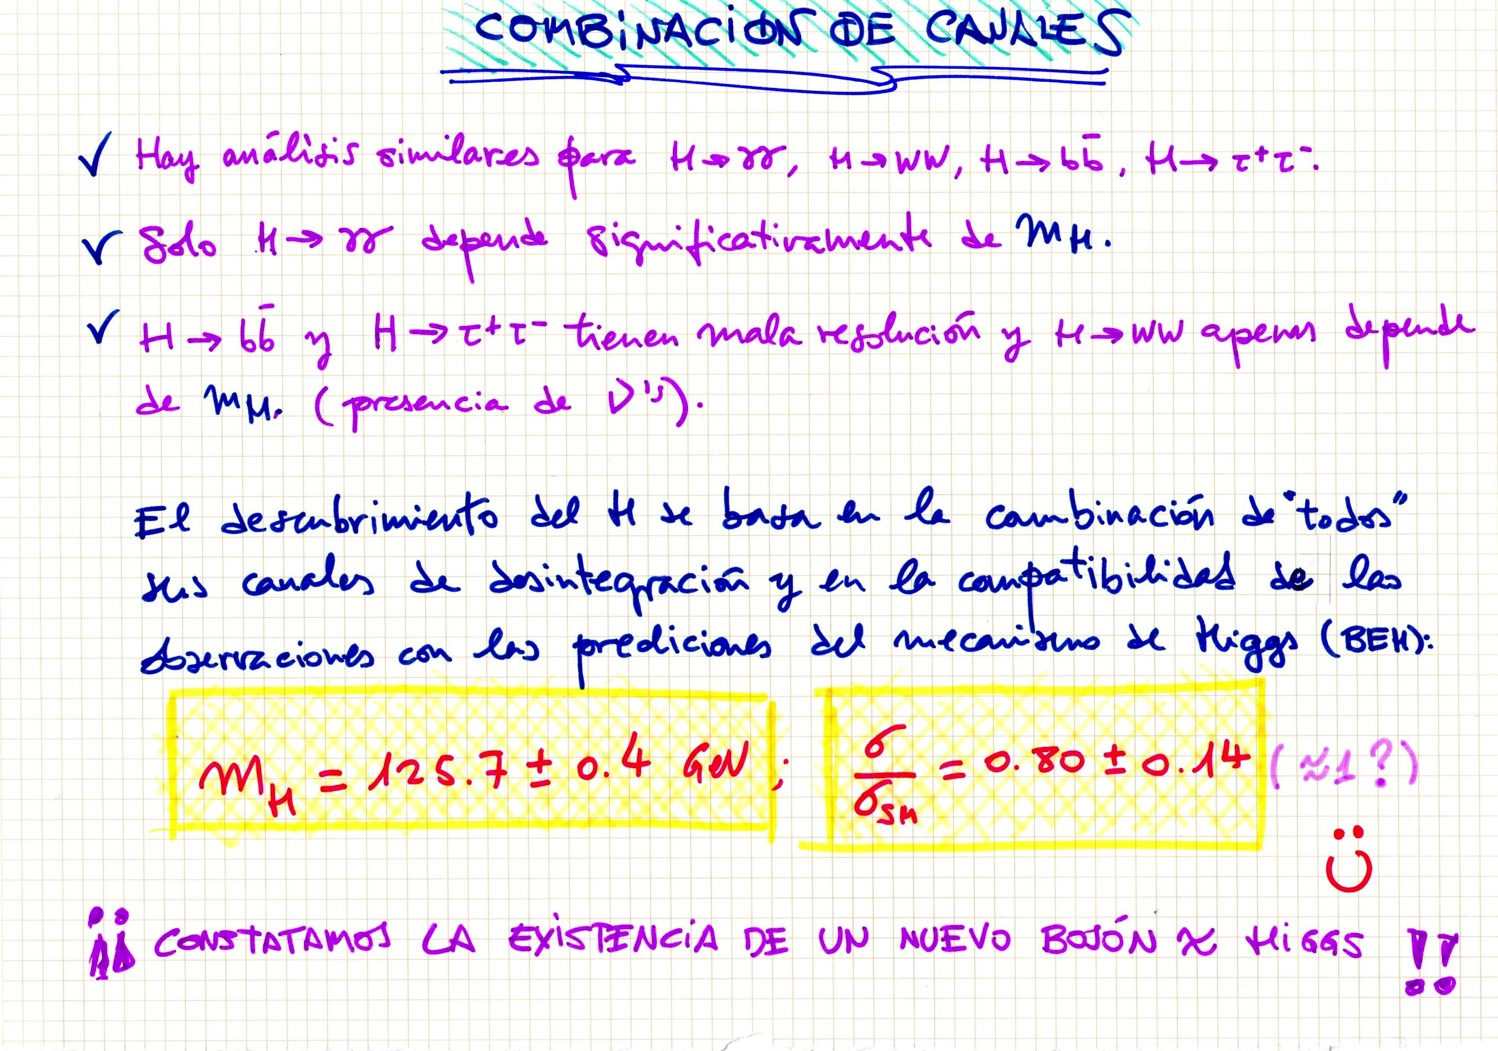 COMBINACIÓN DE CANALES
✓ Hay análisis similares para H→γγ, H→WW, H→bb̄, H→τ⁺τ⁻.
✓ Solo H→γγ depende significativamente de m_H.
✓ H→bb̄ y H→τ⁺τ⁻ tienen mala resolución y H→WW apenas depende
de m_H. (presencia de ν's).
El descubrimiento del H se basa en la combinación de "todos"
sus canales de desintegración y en la compatibilidad de las
observaciones con las prediciones del mecanismo de Higgs (BEH):
m_H = 125.7 ± 0.4 GeV ; σ/σ_SM = 0.80 ± 0.14 (≈1?)
¡¡ CONSTATAMOS LA EXISTENCIA DE UN NUEVO BOSÓN ≈ HiGGS !!